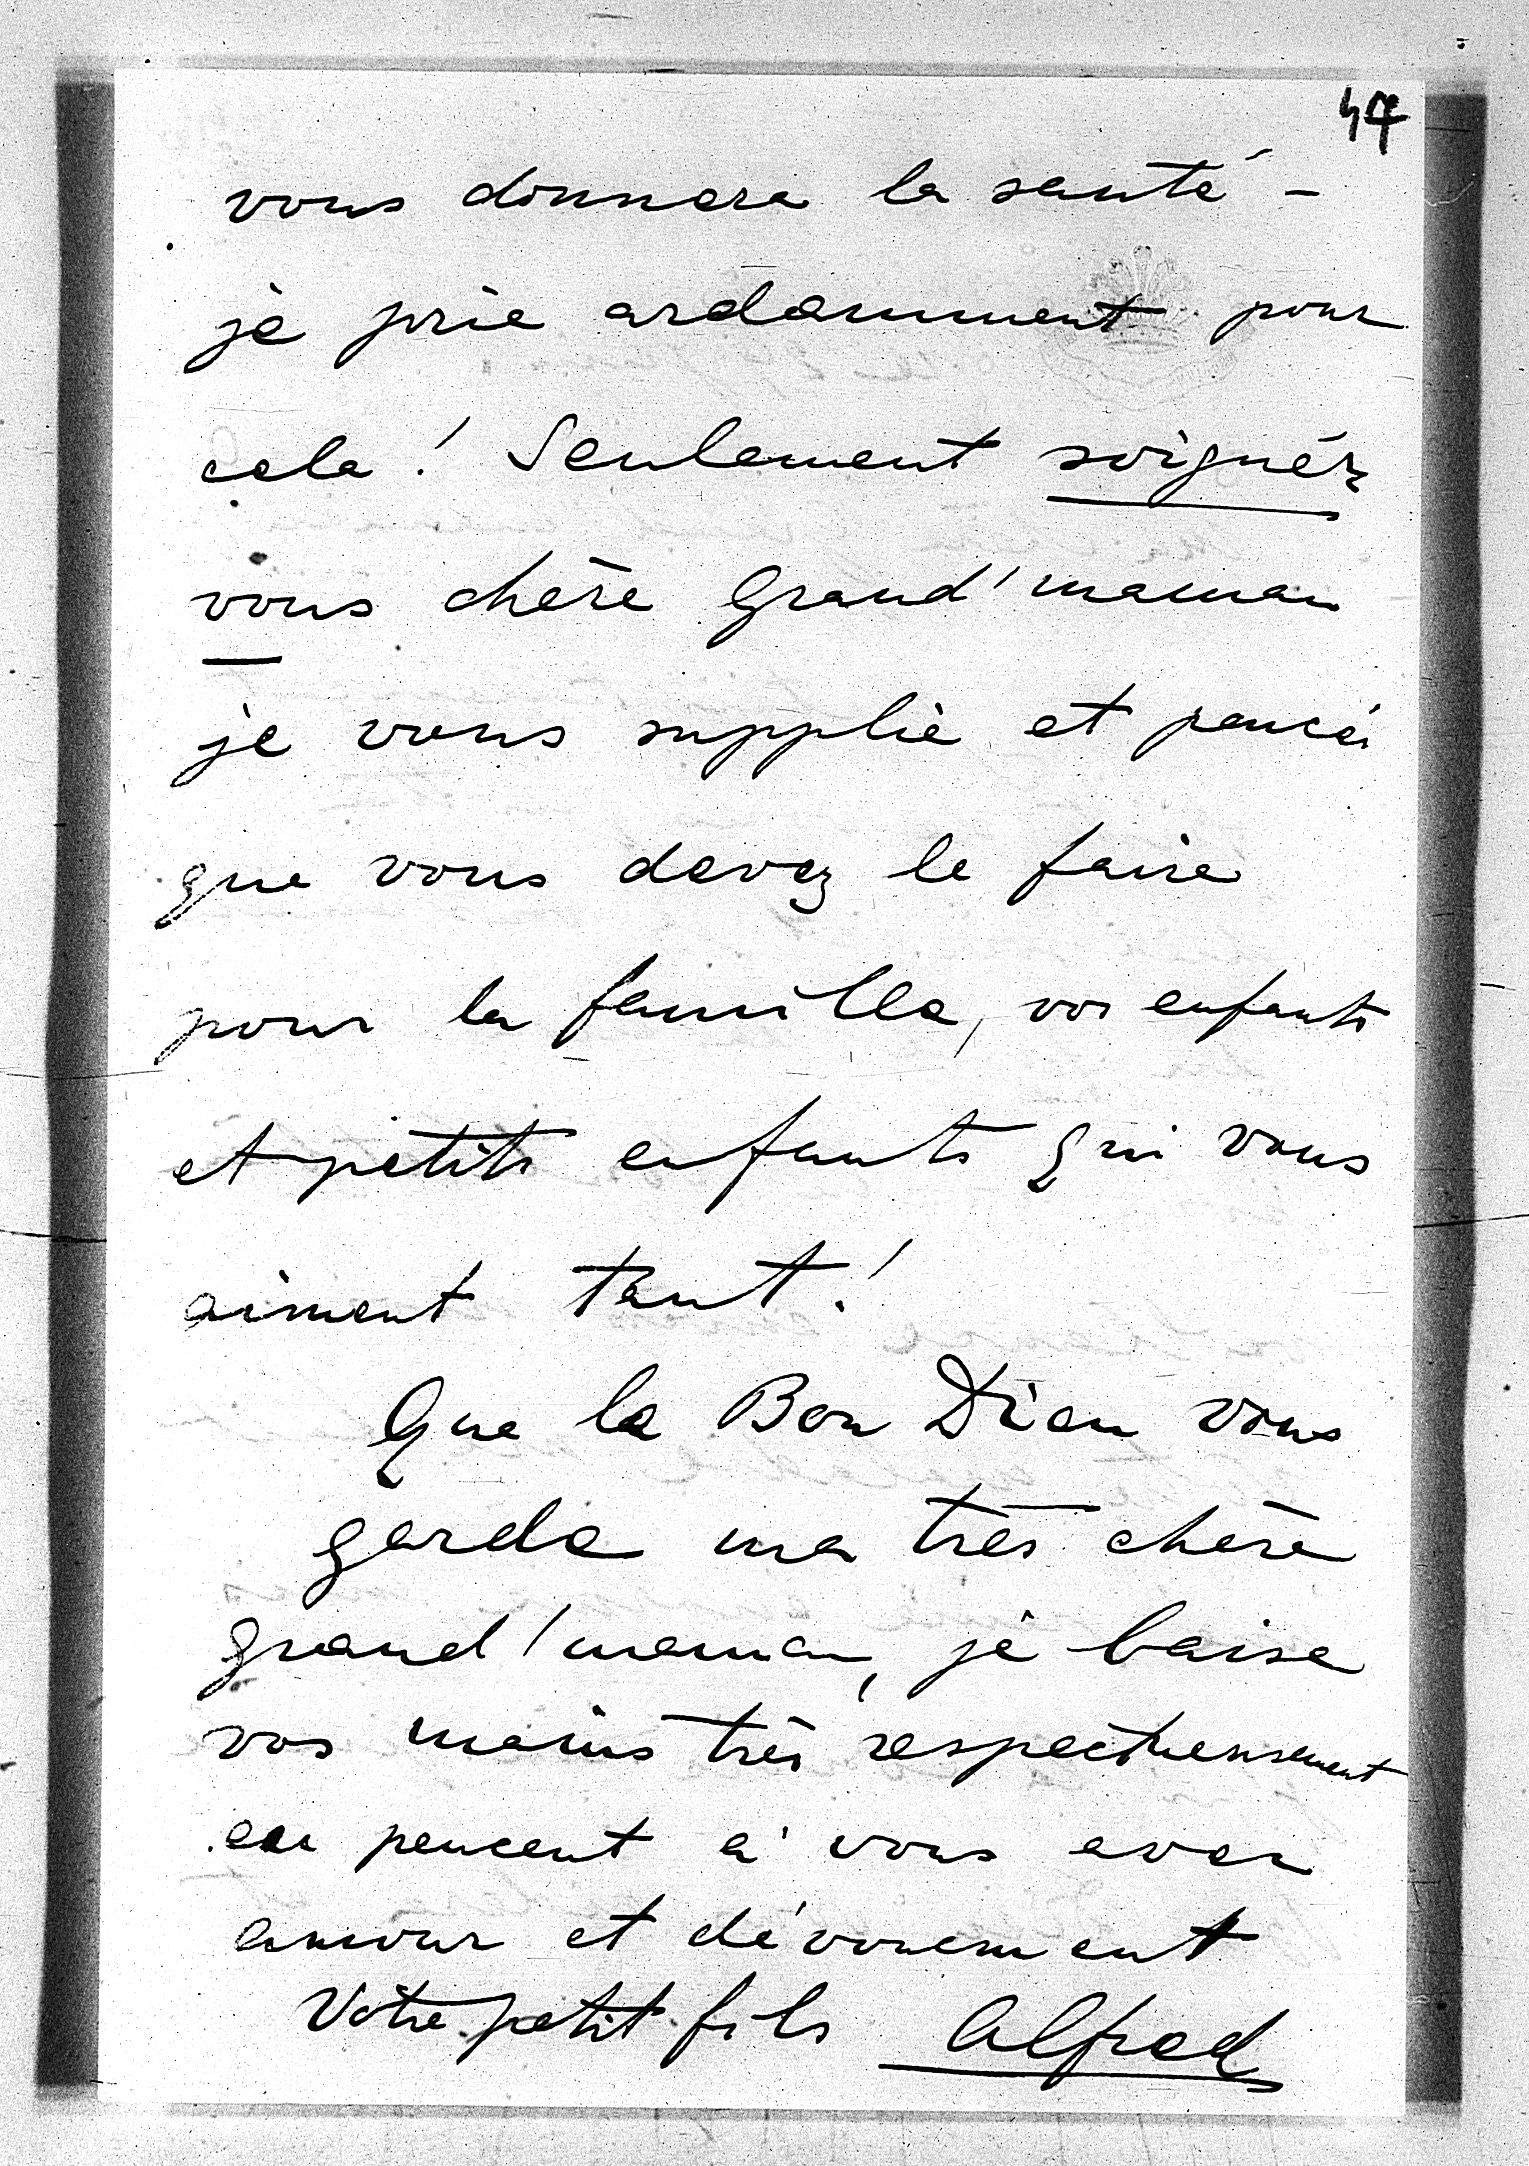 47
vous donnera la santé -
je prie ardemment pour
cela ! Seulement soignéz
vous chère Grand'maman
je vous supplie et pencéz
que vous devez le faire
pour la famille, vos enfants
et petits enfants qui vous
aiment tant !
Que le Bon Dieu vous
garde ma très chère
grand'maman, je baise
vos mains très respectueusement
en pencent à vous avec
amour et dévouement
Votre petit fils Alfred